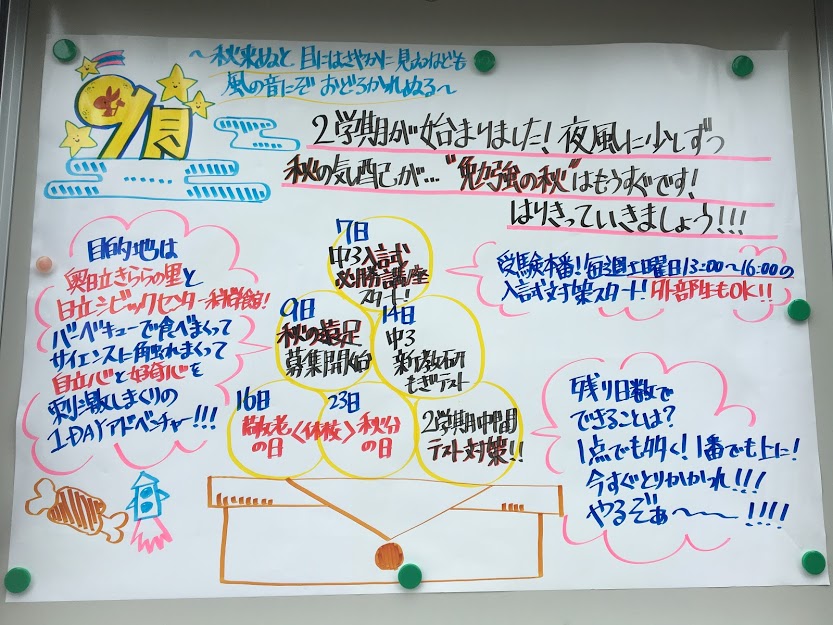 9月
〜秋来ぬと 目にはさやかに 見えねども
風の音にぞ おどろかれぬる〜
2学期が始まりました! 夜風に少しずつ
秋の気配が… "勉強の秋"はもうすぐです!
はりきっていきましょう!!!
7日
中3入試
必勝講座
スタート!
受験本番! 毎週土曜日13:00〜16:00の
入試対策スタート! 外部生もOK!!
目的地は
奥日立きららの里と
日立シビックセンター科学館!
バーベキューで食べまくって
サイエンスに触れまくって
自立心と好奇心を
刺激しまくりの
1DAYアドベンチャー!!!
9日
秋の遠足
募集開始
14日
中3
新教研
もぎテスト
16日
敬老
の日
<休校>
23日
秋分
の日
2学期中間
テスト対策!!
残り日数で
できることは?
1点でも多く! 1番でも上に!
今すぐとりかかれ!!!
やるぞぉ〜〜〜!!!!